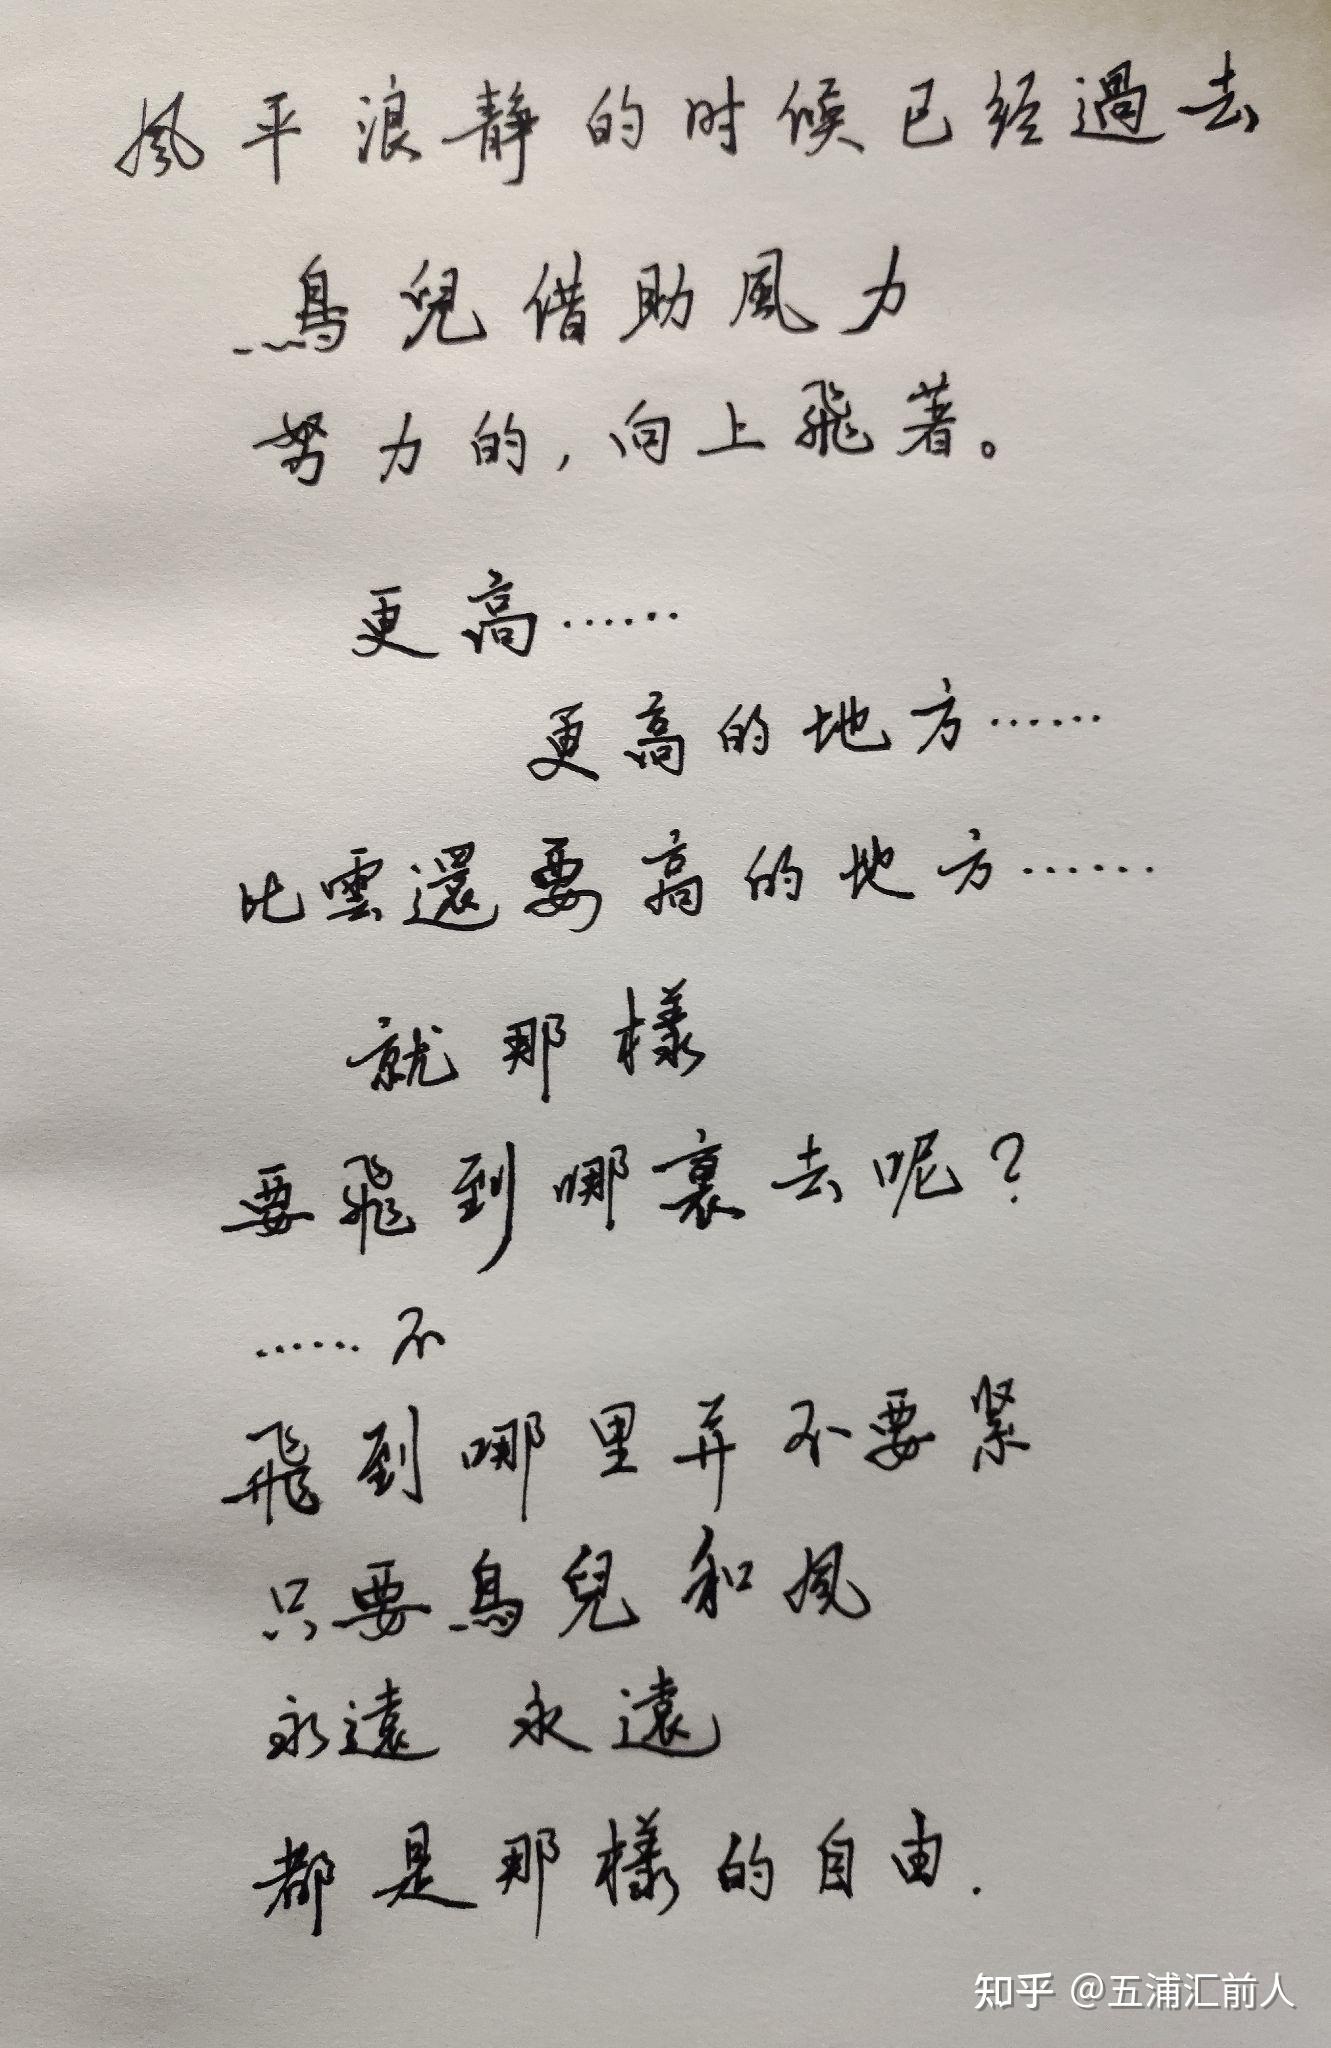 風平浪静的时候已经過去
鳥兒借助風力
努力的,向上飛著。
更高……
更高的地方……
比雲還要高的地方……
就那樣
要飛到哪裏去呢?
……不
飛到哪里并不要紧
只要鳥兒和風
永遠 永遠
都是那樣的自由.
知乎 @五浦汇前人